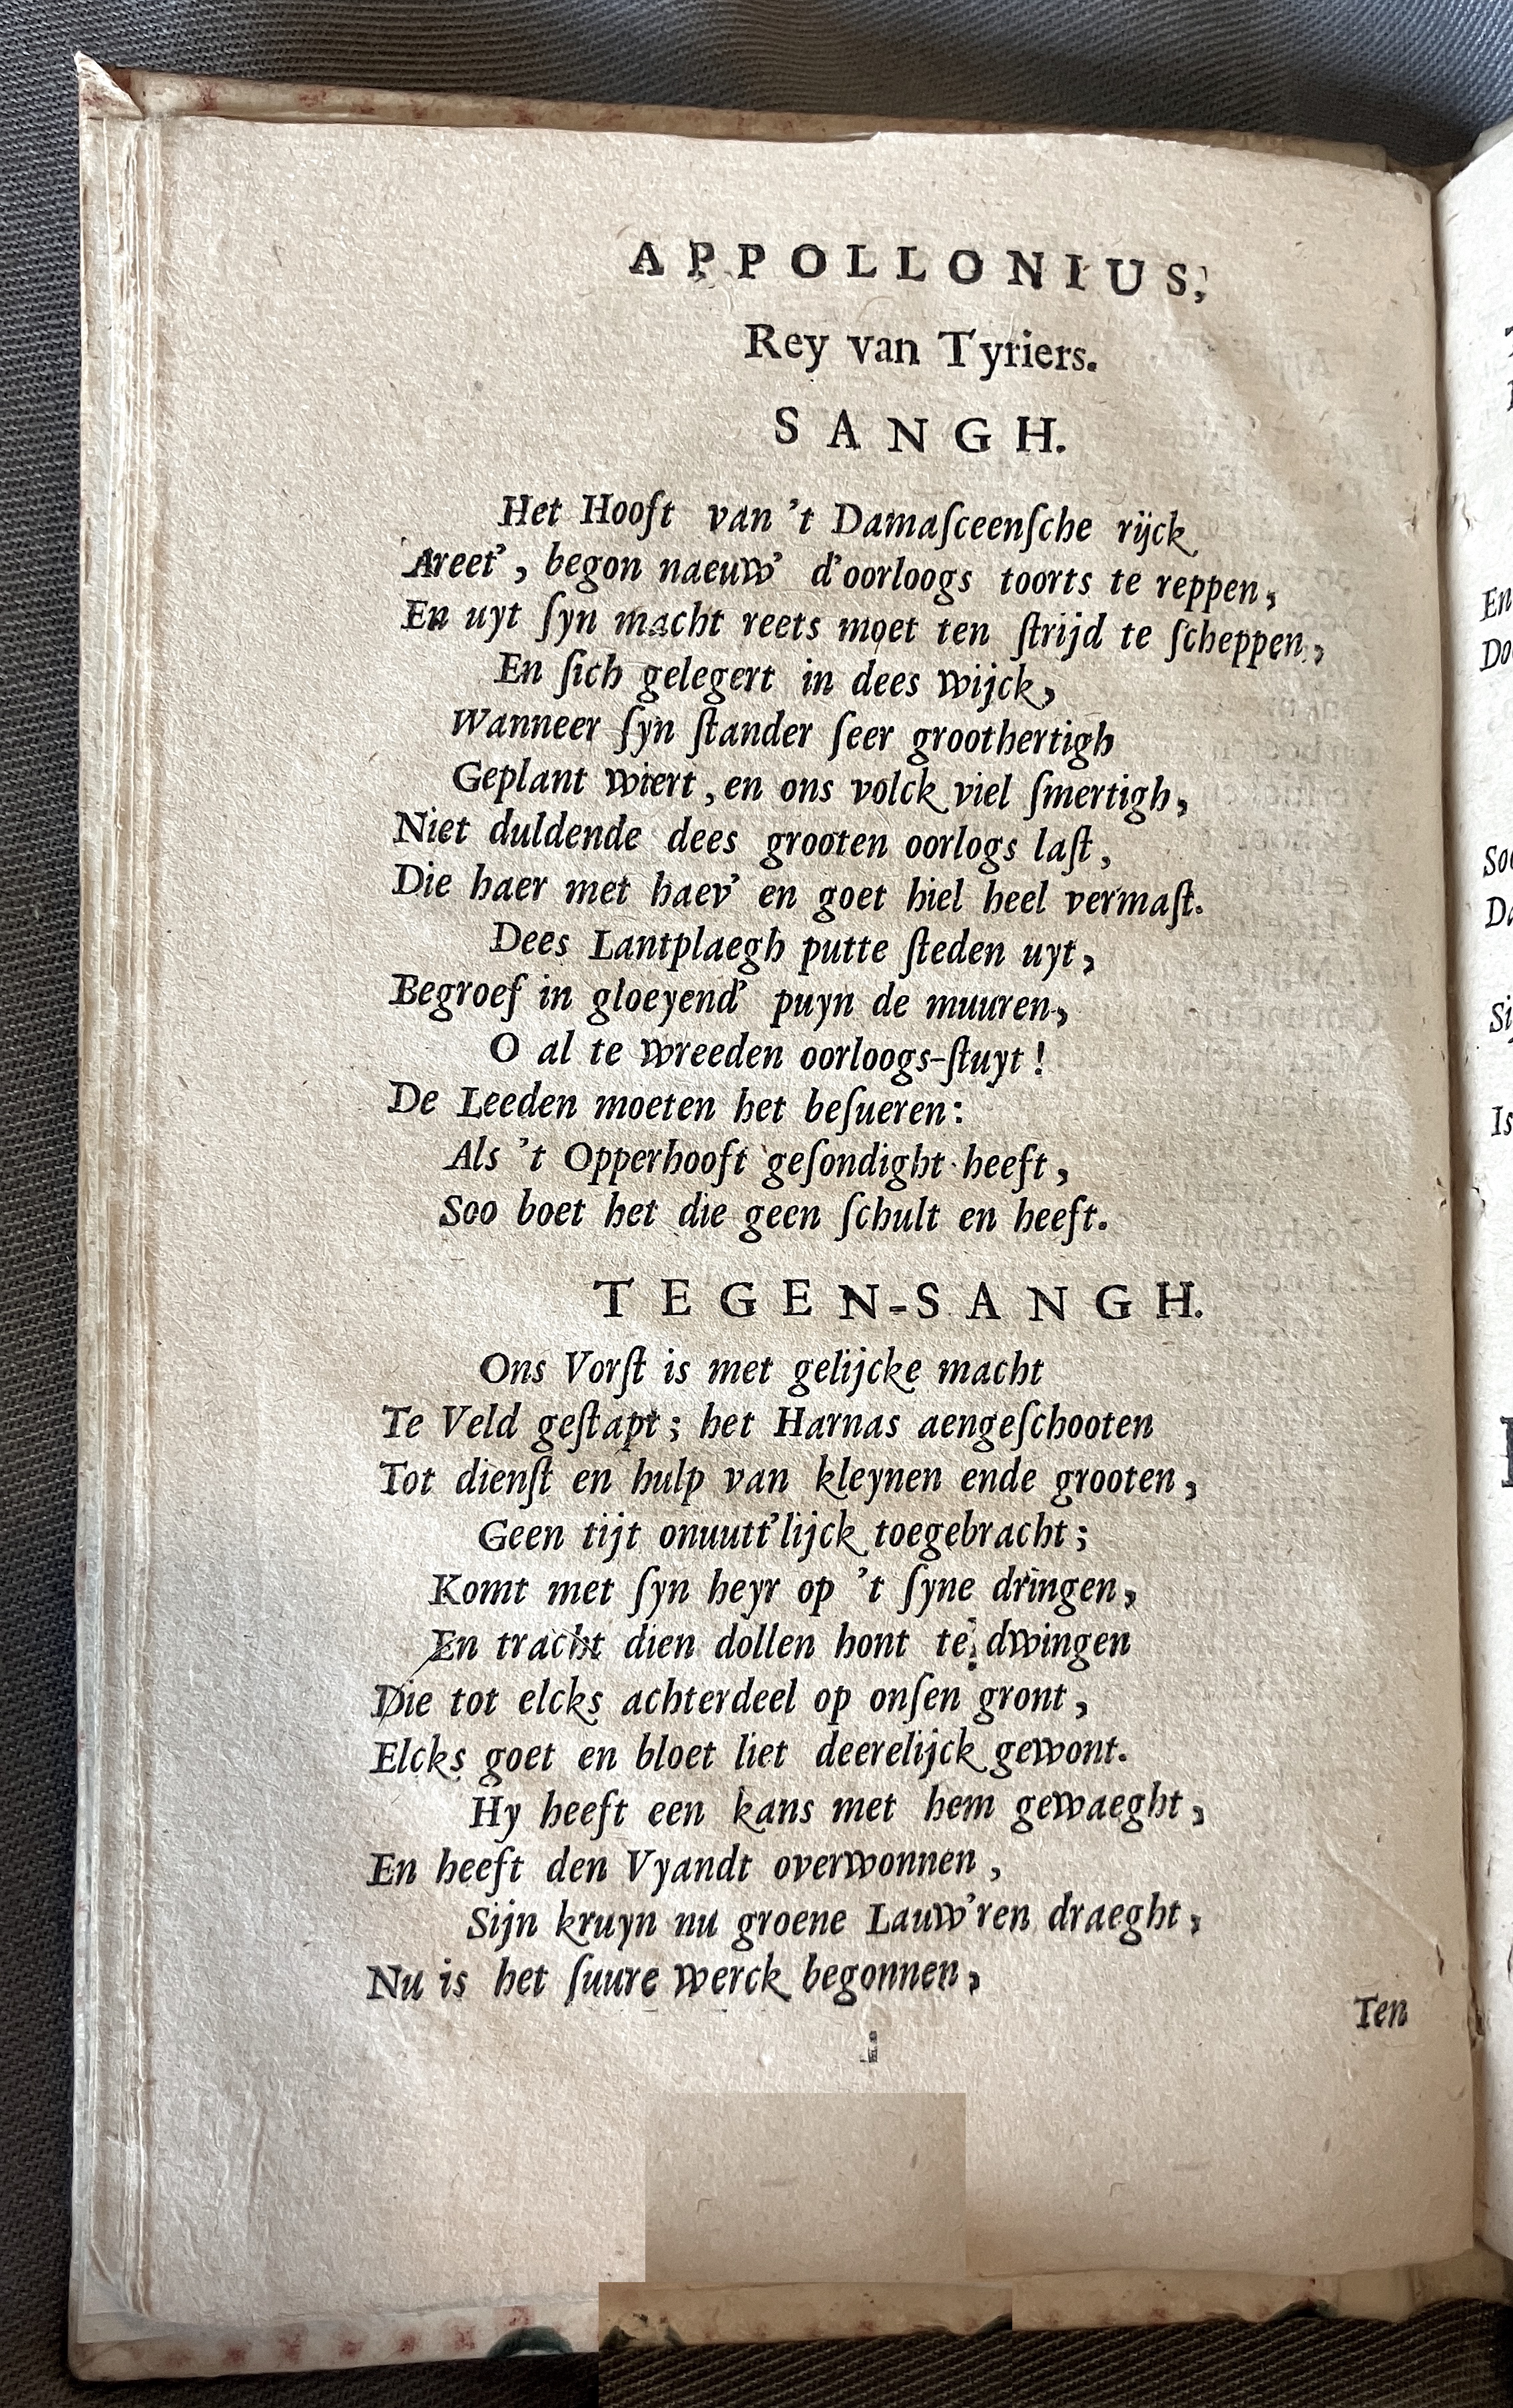 APPOLLONIUS,
Rey van Tyriers.
SANGH.
Het Hooft van 't Damaſceenſche rijck
Areet', begon naeuw' d'oorloogs toorts te reppen,
En uyt ſyn macht reets moet ten ſtrijd te ſcheppen,
En ſich gelegert in dees wijck,
Wanneer ſyn ſtander ſeer groothertigh
Geplant wiert, en ons volck viel ſmertigh,
Niet duldende dees grooten oorlogs laſt,
Die haer met haev' en goet hiel heel vermaſt.
Dees Lantplaegh putte ſteden uyt,
Begroef in gloeyend' puyn de muuren,
O al te wreeden oorloogs-ſtuyt!
De Leeden moeten het beſueren:
Als 't Opperhooft geſondight heeft,
Soo boet het die geen ſchult en heeft.
TEGEN-SANGH.
Ons Vorſt is met gelijcke macht
Te Veld geſtapt; het Harnas aengeſchooten
Tot dienſt en hulp van kleynen ende grooten,
Geen tijt onuutt'lijck toegebracht;
Komt met ſyn heyr op 't ſyne dringen,
En tracht dien dollen hont te dwingen
Die tot elcks achterdeel op onſen gront,
Elcks goet en bloet liet deerelijck gewont.
Hy heeft een kans met hem gewaeght,
En heeft den Vyandt overwonnen,
Sijn kruyn nu groene Lauw'ren draeght,
Nu is het ſuure werck begonnen,
Ten